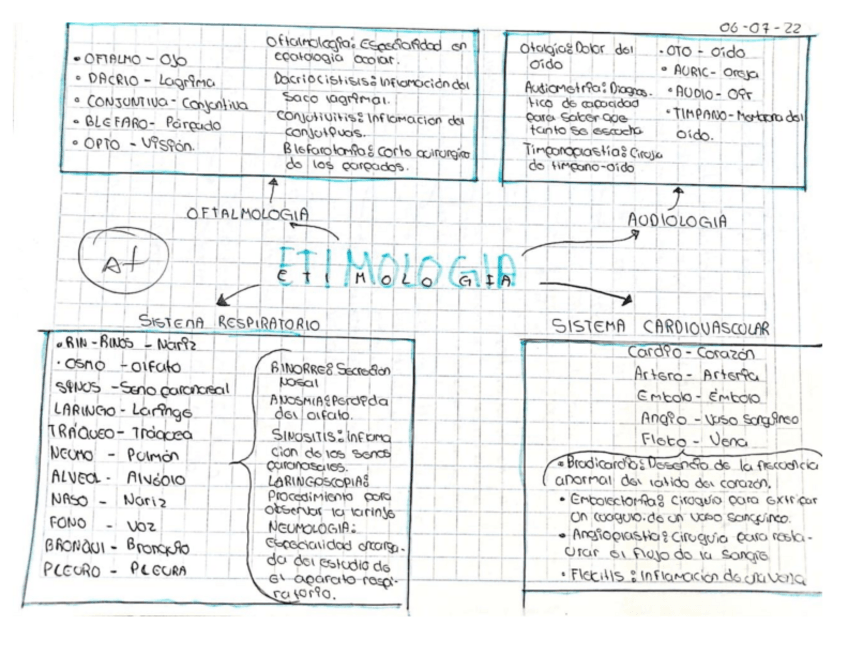 06-07-22
• OFTALMO - Ojo
• DACRIO - Lagrima
• CONJUNTIVA - Conjuntiva
• BLEFARO - Parpado
• OPTO - Visión.
Oftalmología: Especialidad en
patología ocolar.
Dacriocistisis: Inflamación del
saco lagrimal.
Conjutivitis: Inflamacion del
Blefarotomía: Corto quirurgico
de los parpados.
Otalgia: Dolor del
oido
Audiometria: Diagnos-
tico de capacidad
para saber que
tanto se escucha
Timpanoplastia: Cirujia
de timpano-oido
• OTO - oido
• AURIC - Oreja
• AUDIO - Oir
• TIMPANO - Membrana del
oido.
OFTALMOLOGIA
AUDIOLOGIA
A+
ETIMOLOGIA
ETIMOLOGIA
SISTEMA RESPIRATORIO
SISTEMA CARDIOVASCOLAR
• RIN - RINOS - Nariz
• OSMO - olfato
SINOS - Seno paranasal
LARINGO - Laringe
TRÁQUEO - Tráquea
NEUMO - Pulmón
ALVEOL - Alvéolo
NASO - Nariz
FONO - VOZ
BRONQUI - Bronquio
PLEURO - PLEURA
RINORRE: Secrecion
Nasal
ANOSMIA: Perdida
del olfato.
SINOSITIS: Inflama
cion de los senos
paranasales.
LARINGOSCOPIA:
Procedimiento para
observar la laringe
NEUMOLOGIA:
Especialidad encarga-
da del estudio de
el aparato respi-
ratorio.
Cardio - Corazón
Artero - Arteria
Embolo - Émbolo
Angio - Vaso Sangíneo
Flebo - Vena
• Bradicardia: Desenso de la frecuencia
anormal del latido del corazón.
• Embolectomia: Ciroguía para extirpar
un coagulo de un vaso sanguineo.
• Angioplastia: Ciroguia para resta-
urar el flujo de la sangre
• Flebitis: Inflamacion de una vena